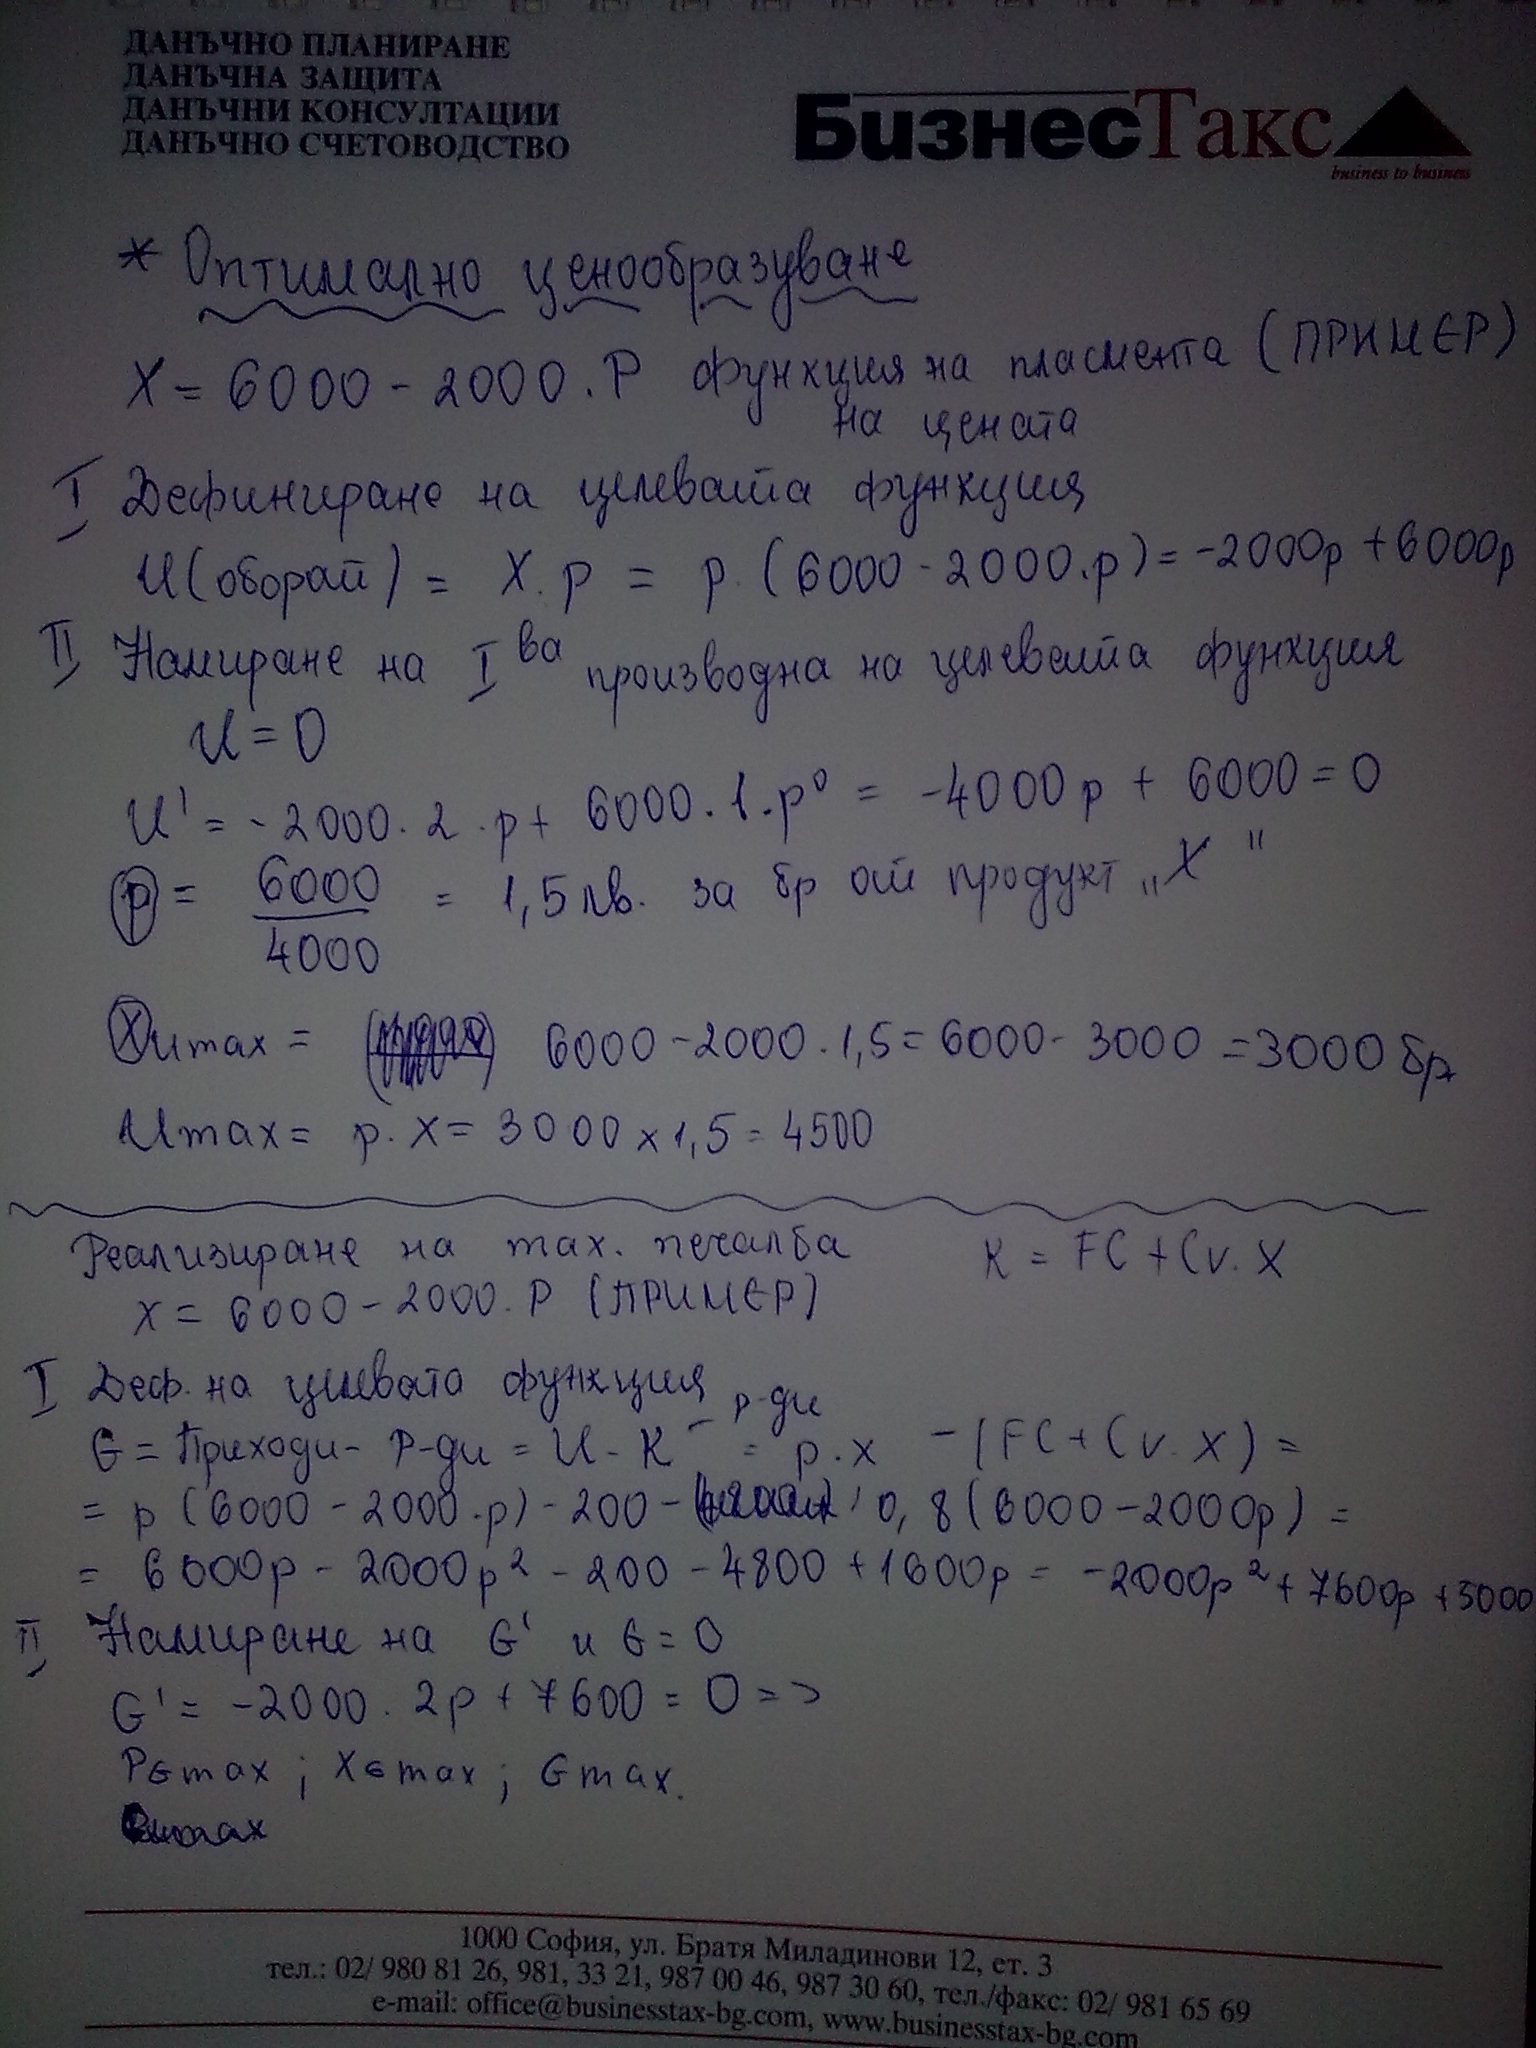 ДАНЪЧНО ПЛАНИРАНЕ
ДАНЪЧНА ЗАЩИТА
ДАНЪЧНИ КОНСУЛТАЦИИ
ДАНЪЧНО СЧЕТОВОДСТВО
БизнесТакс
business to business
* Оптимално ценообразуване
X = 6000 - 2000 . P функция на пласмента (ПРИМЕР)
на цената
I Дефиниране на целевата функция
U (оборот) = X . p = p . (6000 - 2000 . p) = -2000p + 6000p
II Намиране на I ва производна на целевата функция
U = 0
U' = -2000 . 2 . p + 6000 . 1 . p⁰ = -4000p + 6000 = 0
p = 6000 / 4000 = 1,5 лв. за бр от продукт „X"
Xumax = 6000 - 2000 . 1,5 = 6000 - 3000 = 3000 бр.
Umax = p . X = 3000 x 1,5 = 4500
Реализиране на max. печалба K = FC + Cv . X
X = 6000 - 2000 . P (ПРИМЕР)
I Деф. на целевата функция
G = Приходи - Р-ди = U - K - р-ди = p . x - (FC + Cv . X) =
= p (6000 - 2000 . p) - 200 - 0,8 (6000 - 2000p) =
= 6000p - 2000p² - 200 - 4800 + 1600p = -2000p² + 7600p + 5000
II Намиране на G' и G = 0
G' = -2000 . 2p + 7600 = 0 =>
PGmax ; XGmax ; Gmax.
1000 София, ул. Братя Миладинови 12, ет. 3
тел.: 02/ 980 81 26, 981, 33 21, 987 00 46, 987 30 60, тел./факс: 02/ 981 65 69
e-mail: office@businesstax-bg.com, www.businesstax-bg.com